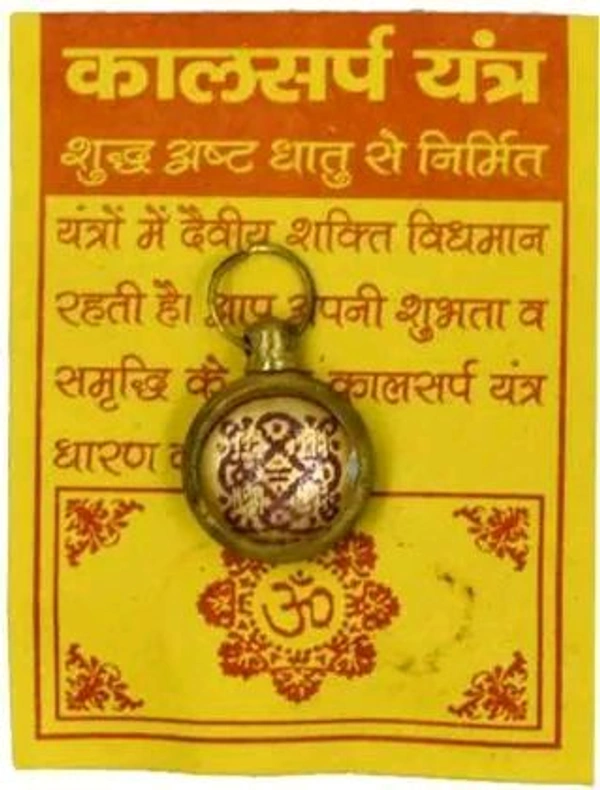 कालसर्प यंत्र
शुद्ध अष्ट धातु से निर्मित
यंत्रों में दैवीय शक्ति विधमान
रहती है। आप अपनी शुभता व
समृद्धि के कालसर्प यंत्र
धारण
ॐ